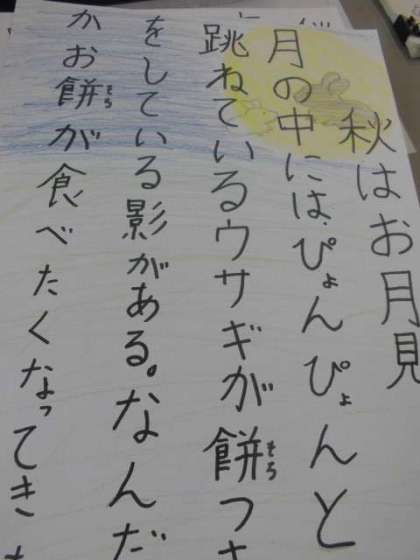 秋はお月見
月の中には、ぴょんぴょんと
跳ねているウサギが餅つき
もち
をしている影がある。なんだ
かお餅が食べたくなってき
もち